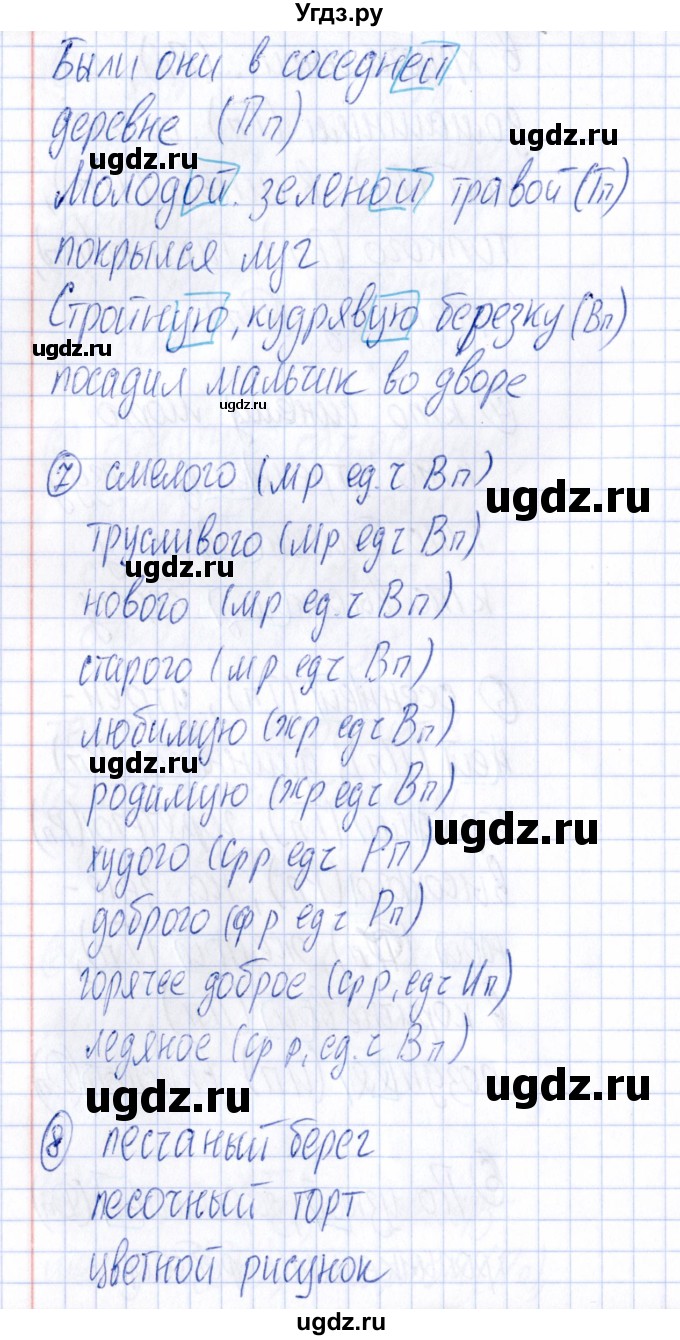 Угдз.ру
Были они в соседней
деревне (Пп)
ugdz.ru
Молодой. зеленой травой (Тп)
покрылся луг
Стройную, кудрявую березку (Вп)
ugdz.ru
посадил мальчик во дворе
ugdz.ru
7 смелого (мр ед.ч Вп)
ugdz.ru
трусливого (мр едч Вп)
ugdz.ru
нового (мр ед.ч Вп)
старого (мр едч Вп)
любимую (жр едч Вп)
ugdz.ru
родимую (жр едч Вп)
ugdz.ru
худого (срр едч Рп)
доброго (ср р едч Рп)
горячее доброе (срр, едч Ип)
ледяное (ср р, ед.ч Вп)
ugdz.ru
ugdz.ru
8 песчаный берег
песочный торт
цветной рисунок
ugdz.ru